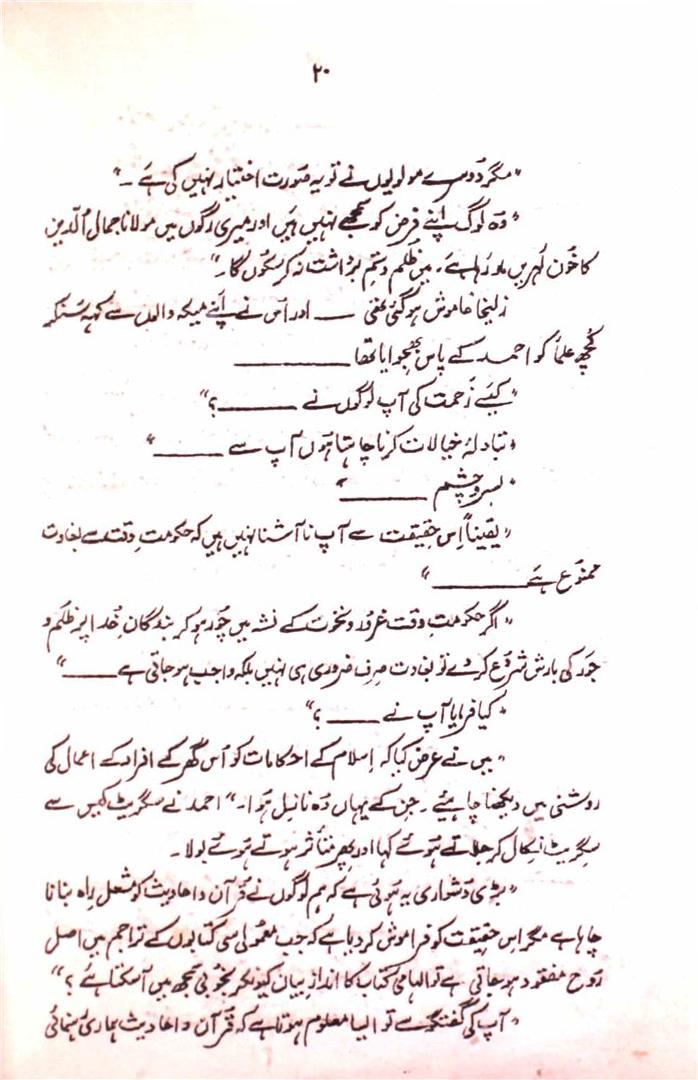 ۲۰
"مگر دوسرے مولویوں نے تو یہ صورت اختیار نہیں کی ہے۔"
"وہ لوگ اپنے فرض کو سمجھے نہیں ہیں اور میری رگوں میں مولانا جمال الدین
کا خون لہریں مار رہا ہے۔ میں ظلم و ستم برداشت نہ کر سکوں گا۔"
زلیخا خاموش ہو گئی تھی ـــــ اور اس نے اپنے میکہ والوں سے کہہ سنکر
کچھ علماً کو احمد کے پاس بھجوایا تھا ــــــــــــ
"کیسے زحمت کی آپ لوگوں نے ــــــــ؟"
"تبادلۂ خیالات کرنا چاہتا ہوں آپ سے ــــــــ"
"بسر و چشم ــــــــ"
"یقیناً اِس حقیقت سے آپ نا آشنا نہیں ہیں کہ حکومتِ وقت سے بغاوت
ممنوع ہے ــــــــــــ"
"اگر حکومتِ وقت غرور و نخوت کے نشہ میں چور ہو کر بندگانِ خدا پر ظلم و
جور کی بارش شروع کر دے تو بغاوت صرف ضروری ہی نہیں بلکہ واجب ہو جاتی ہے ــــــ"
"کیا فرمایا آپ نے ـــــ؟"
"میں نے عرض کیا کہ اِسلام کے احکامات کو اُس گھر کے افراد کے اعمال کی
روشنی میں دیکھنا چاہیئے۔ جن کے یہاں وہ نازل ہوا۔" احمد نے سگریٹ کیس سے
سگریٹ نکال کر جلاتے ہوئے کہا اور پھر متأثر ہوتے ہوئے بولا۔
"بڑی دشواری یہ ہوئی ہے کہ ہم لوگوں نے قرآن و احادیث کو مشعلِ راہ بنانا
چاہا ہے مگر اِس حقیقت کو فراموش کر دیا ہے کہ جب معمولی سی کتابوں کے تراجم میں اصل
روح مفقود ہو جاتی ہے تو الہامی کتاب کا اندازِ بیان کیونکر بخوبی سمجھ میں آ سکتا ہے؟"
"آپ کی گفتگو سے تو ایسا معلوم ہوتا ہے کہ قرآن و احادیث ہماری رہنمائی